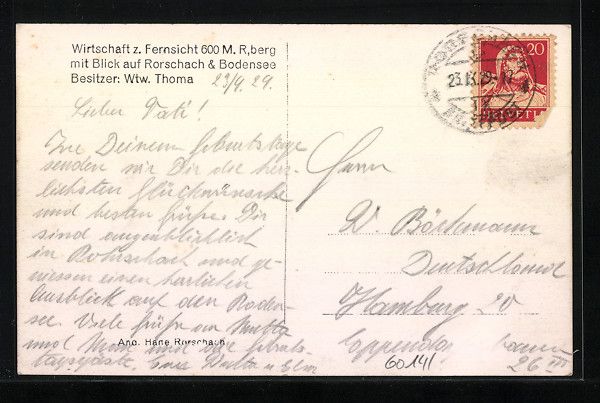 Wirtschaft z. Fernsicht 600 M. R,berg
mit Blick auf Rorschach & Bodensee
Besitzer: Wtw. Thoma
23/9. 29.
Lieber Vati!
Zu Deinem Geburtstage
senden wir Dir die herz-
lichsten Glückwünsche
und besten Grüße. Wir
sind augenblicklich
in Rohrschach und ge-
niessen einen herlichen
Ausblick auf den Boden-
see. Viele Grüße an Mutti
und
Ano. Häne Rorschach
Herrn
W. Böckmann
Deutschland
Hamburg 20
Eppendorf
26 III
60141
20
HELVETIA
23.IX.29